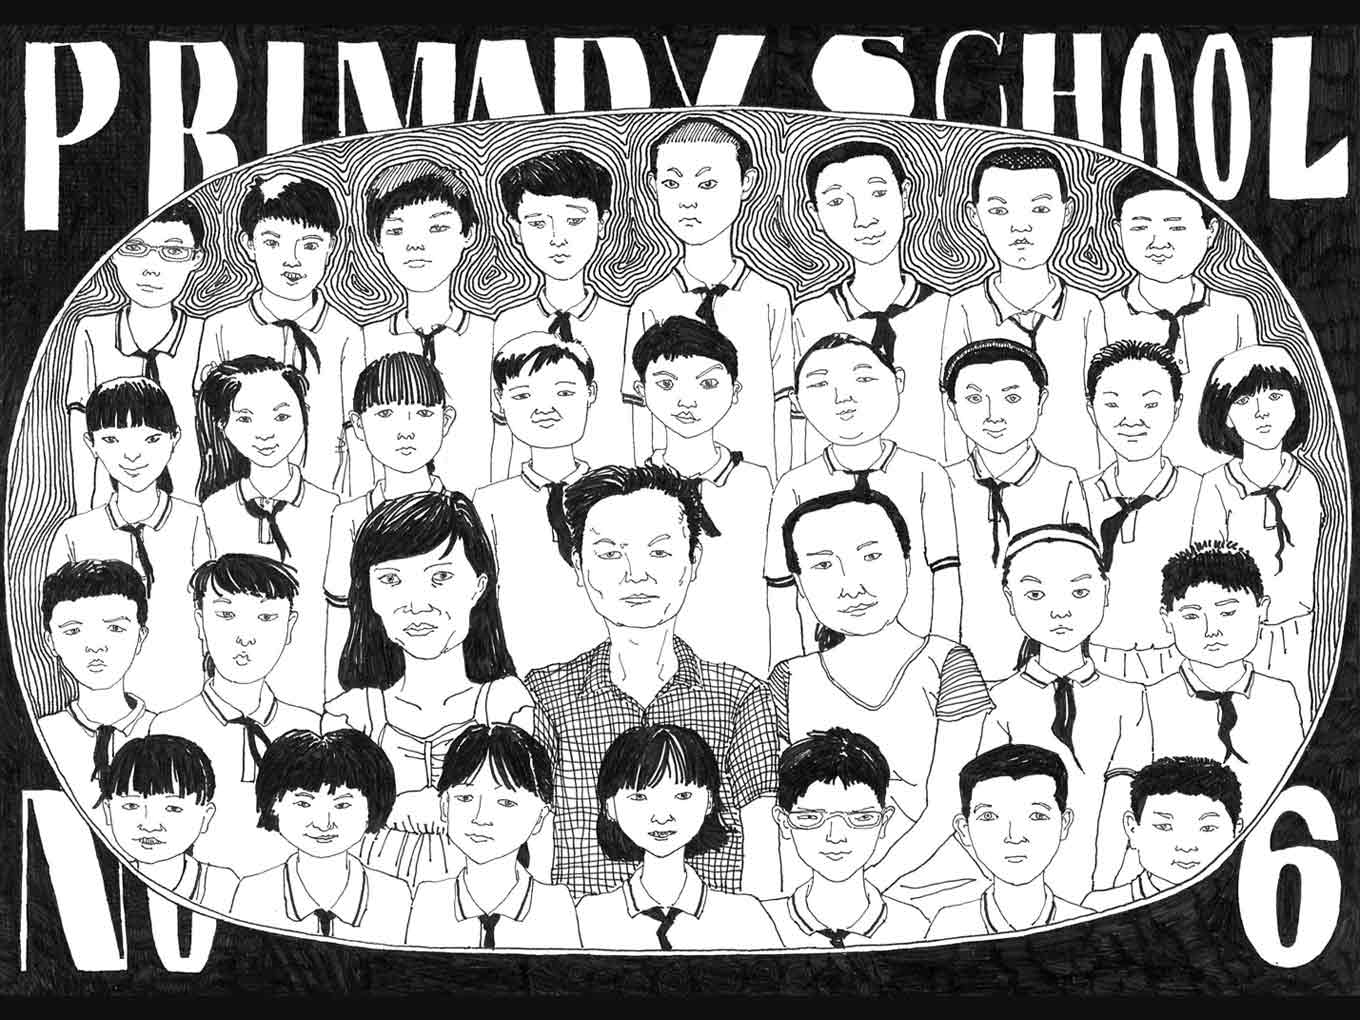 PRIMARY SCHOOL
NO 6